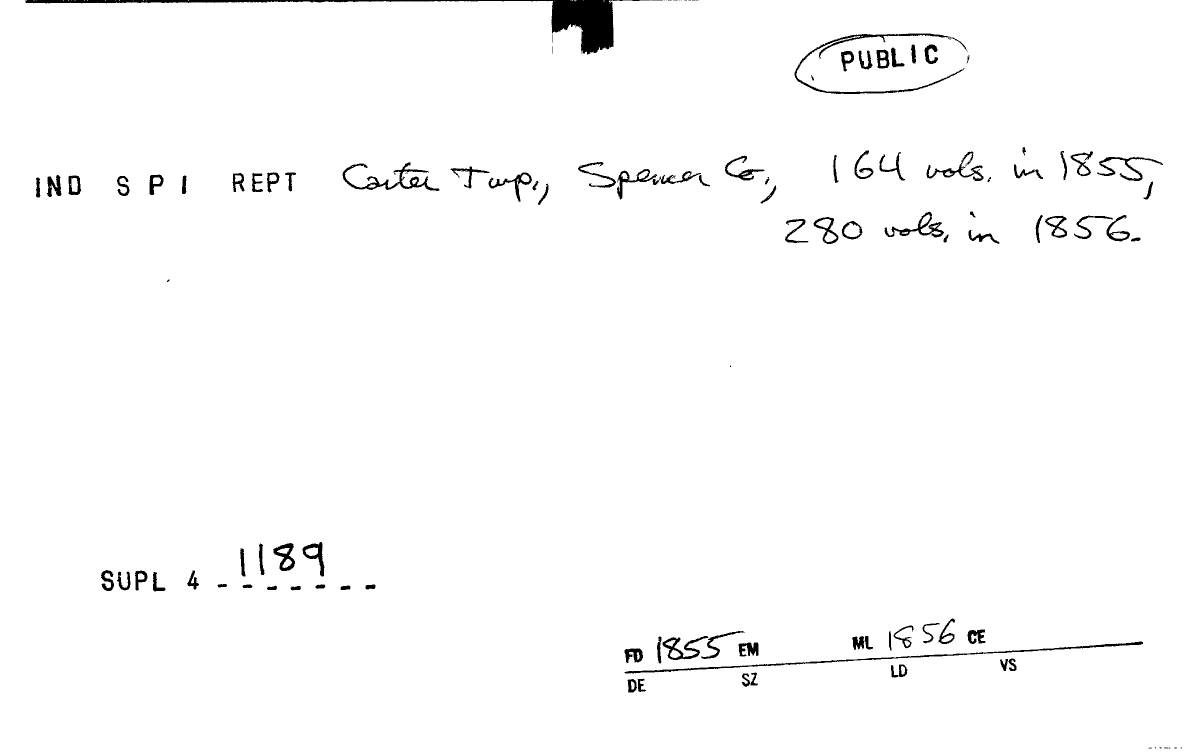 PUBLIC
IND S P I REPT Carter Twp., Spencer Co., 164 vols. in 1855,
280 vols. in 1856.
SUPL 4 - 1189
FD 1855 EM ML 1856 CE
DE SZ LD VS